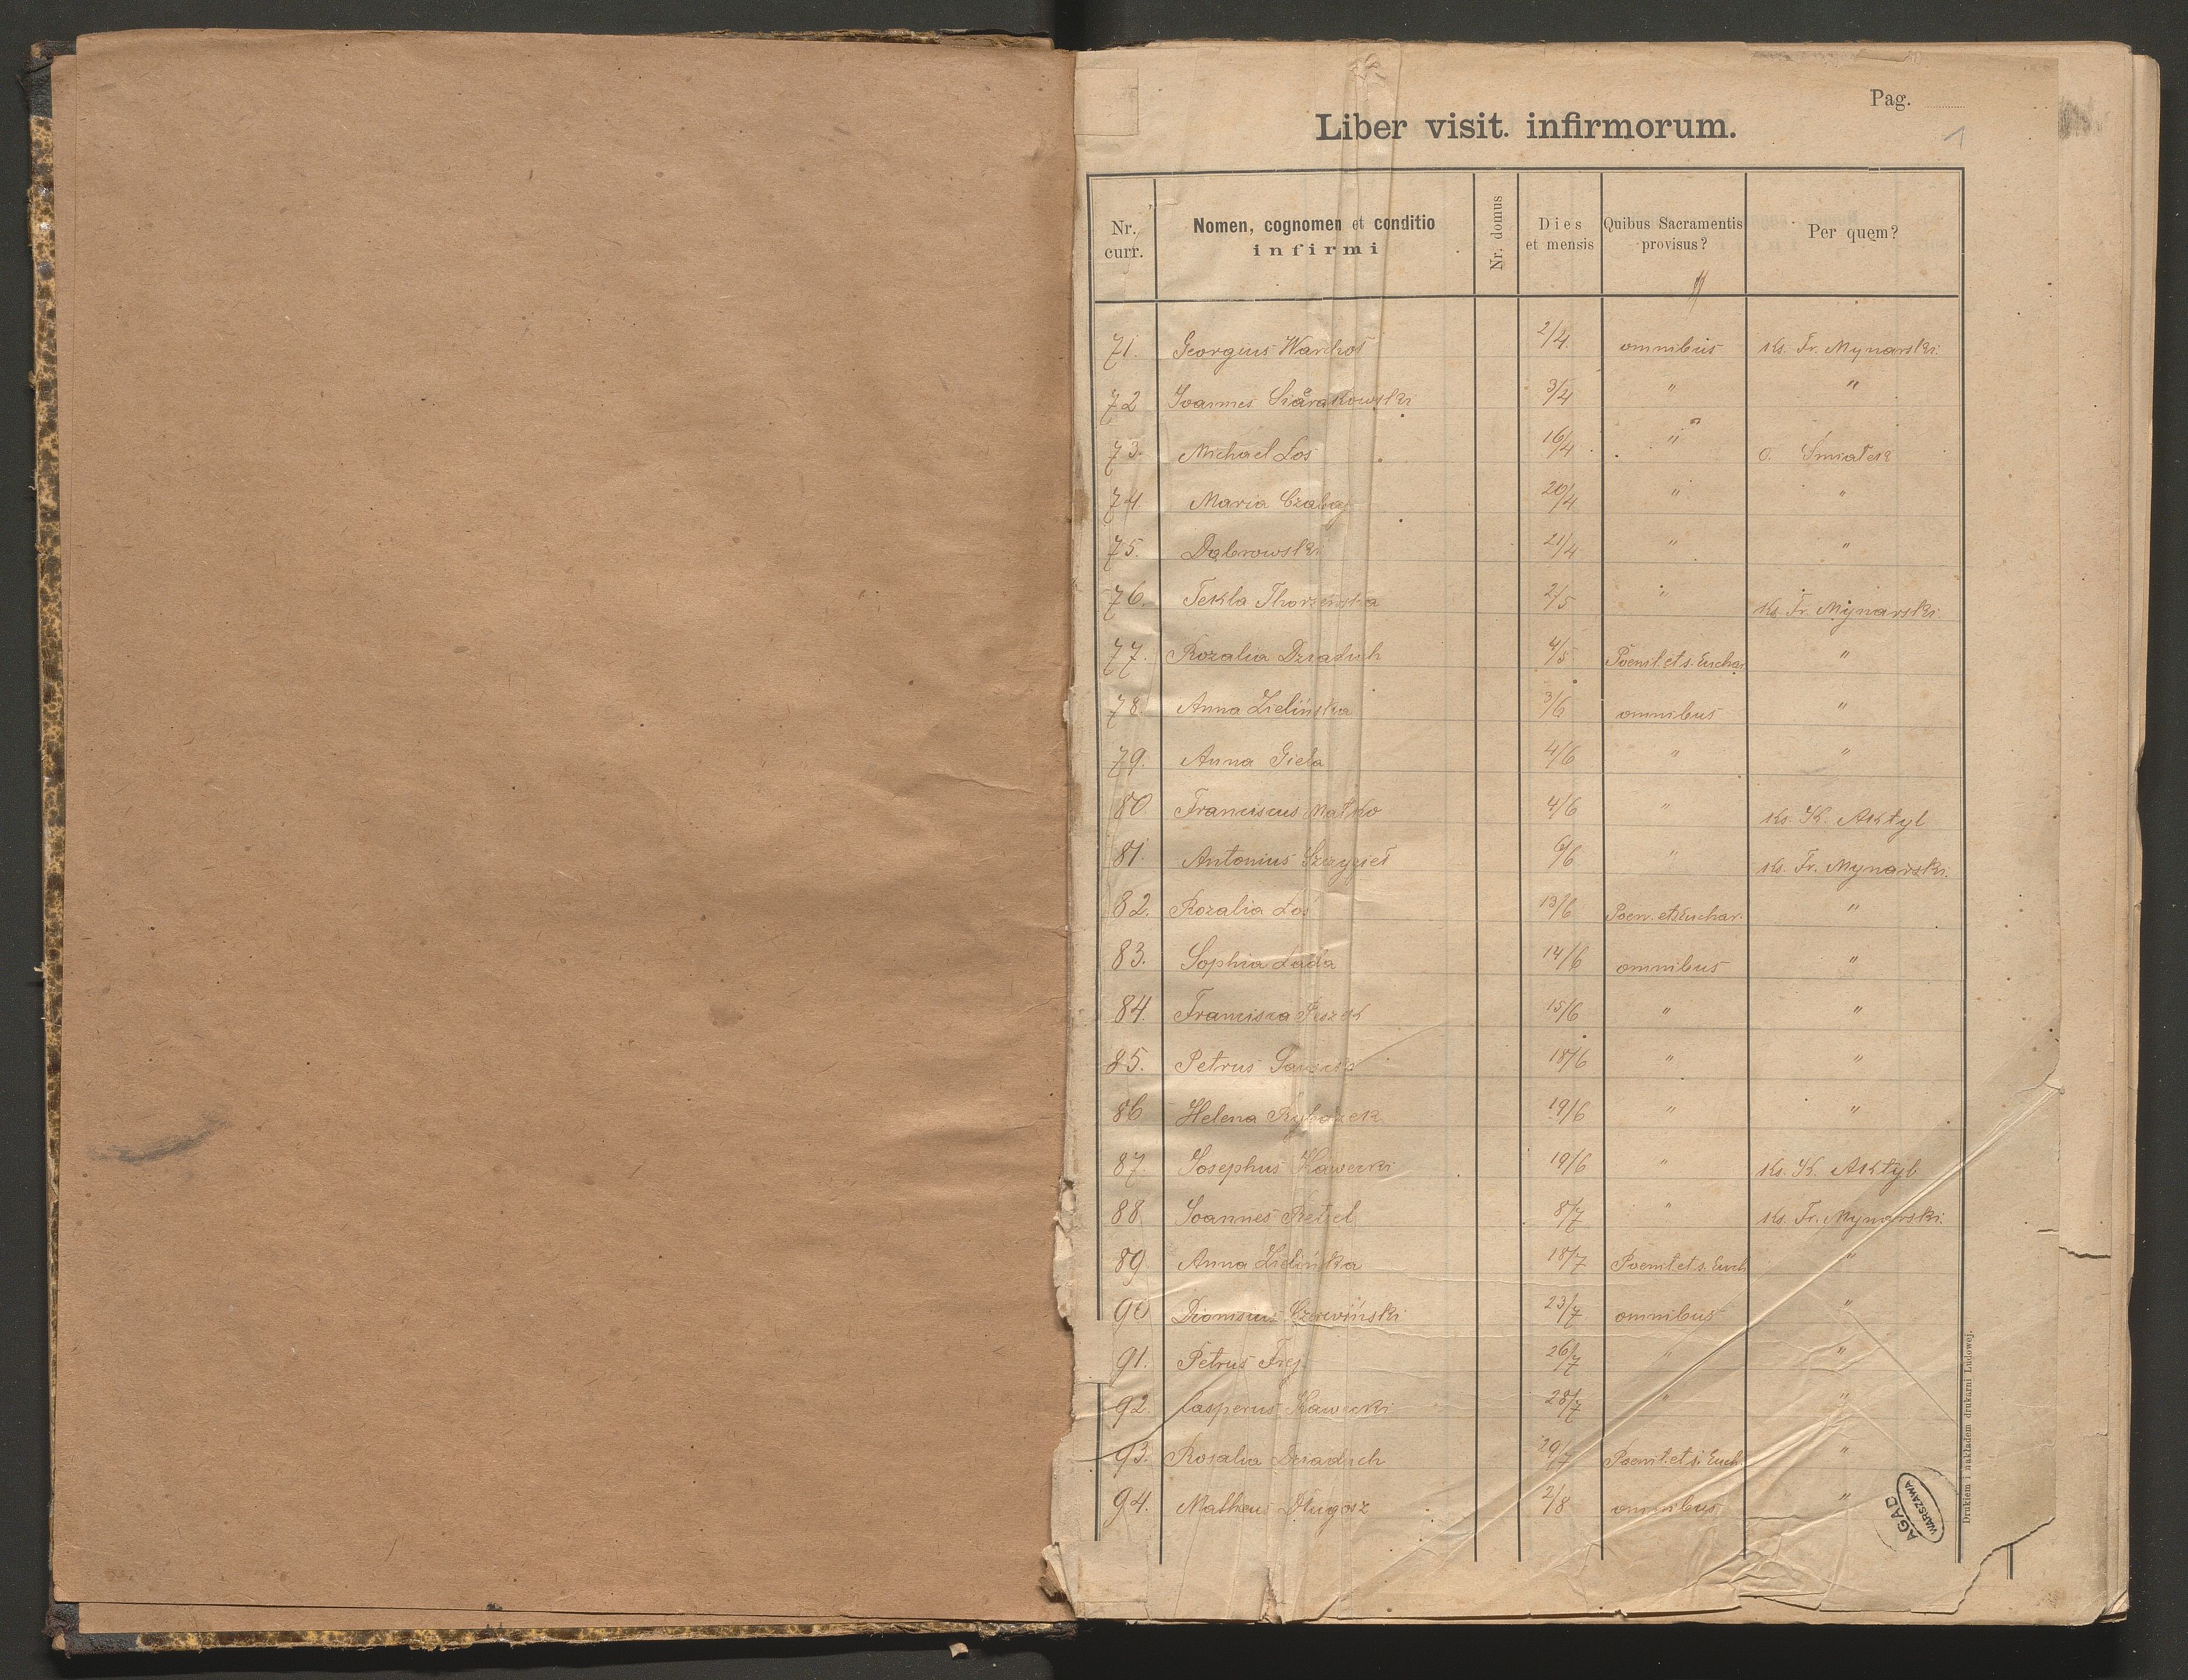 Pag.
1
Liber visit. infirmorum.
Nr. curr. Nomen, cognomen et conditio infirmi Nr. domus Dies et mensis Quibus Sacramentis provisus? Per quem?
71. Georgius Warchoł 2/4 omnibus ks. Fr. Mynarski.
72 Joannes 3/4 " "
73. Michael Łoś 16/4 " O. Smiałek
74. Maria Czabaj 20/4 " "
75. Dąbrowski 21/4 " "
76. Tekla 2/5 " ks. Fr. Mynarski.
77. Rozalia Dziaduch 4/5 Poenit. et s. Euchar. "
78. Anna Zielińska 3/6 omnibus "
79. Anna Giela 4/6 " "
80. Franciscus Małko 4/6 " ks. K. Aktyl
81. Antonius Szczygieł 9/6 " ks. Fr. Mynarski.
82. Rozalia Łoś 13/6 Poen. et s. Euchar. "
83. Sophia Łada 14/6 omnibus "
84. Francisca 15/6 " "
85. Petrus 18/6 " "
86 Helena 19/6 " "
87. Josephus Kawecki 19/6 " ks. K. Aktyl
88 Joannes 8/7 " ks. Fr. Mynarski.
89. Anna Zielińska 18/7 Poenit. et s. Euch "
90 Dionisius Czerwiński 23/7 omnibus "
91. Petrus Frej 26/7 " "
92. Casperus Kawecki 28/7 " "
93. Rosalia Dziaduch 29/7 Poenit. et s. Euch. "
94. Matheus Długosz 2/8 omnibus "
Drukiem i nakładem drukarni Ludowej.
AGAD
WARSZAWA